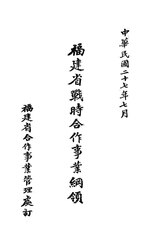 中華民國二十七年七月
福建省戰時合作事業綱領
福建省合作事業管理處訂